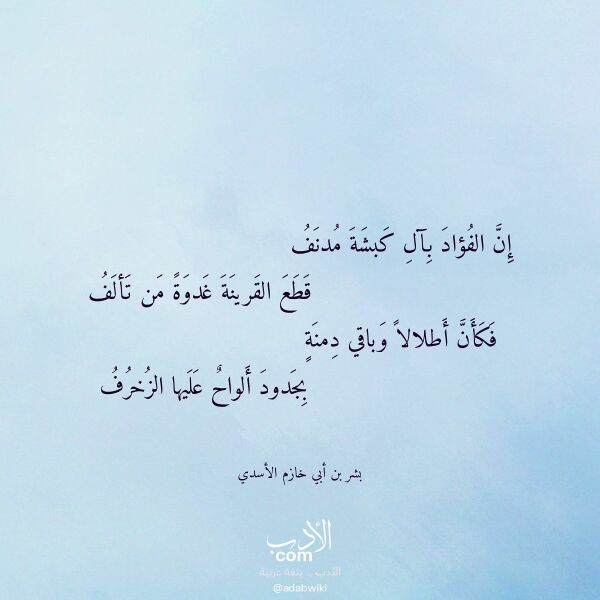 إِنَّ الفُؤادَ بِآلِ كَبشَةَ مُدنَفُ
قَطَعَ القَرينَةَ غَدوَةً مَن تَألَفُ
فَكَأَنَّ أَطلالاً وَباقي دِمنَةٍ
بِجَدودَ أَلواحٌ عَلَيها الزُخرُفُ
بشر بن أبي خازم الأسدي
الأدب
com
الأدب .. بلغة عربية
@adabwiki